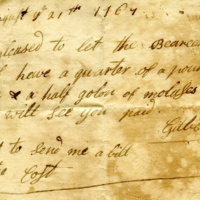 21st 1767
pleased to let the Bearer
have a quarter of a poun
& a half golon of molases
will see you paid.
Gilb
to send me a bill
Cost